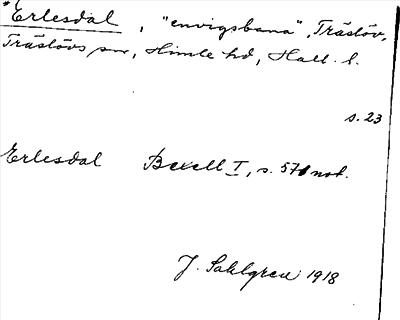 *Erlesdal, "envigsbana", Träslöv,
Träslövs sn, Himle hd, Hall. l.
s. 23
Erlesdal Bexell I, s. 571 not.
J. Sahlgren 1918